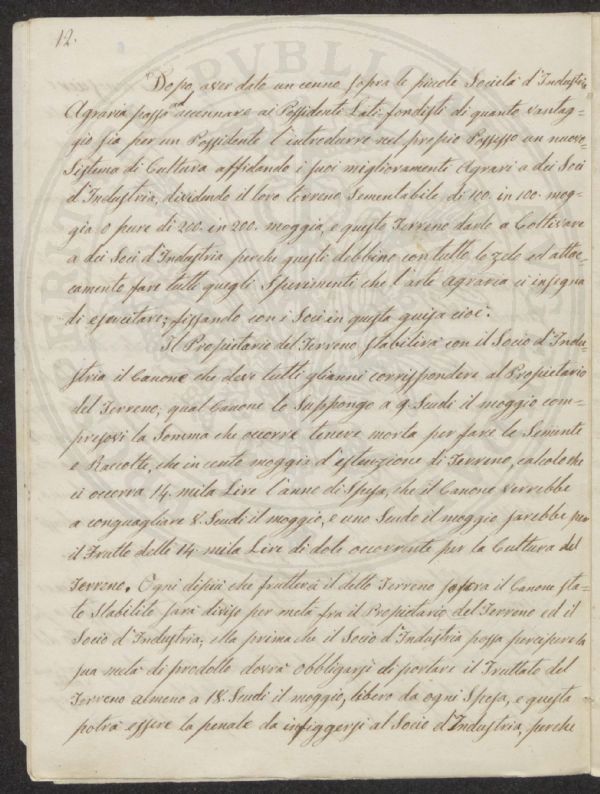 12.
Dopo, aver dato un cenno sopra le piccole Società d'Industria
Agraria passo ad accennare ai Possidenti Lati-fondisti di quanto vantag=
gio sia per un Possidente l'introdurre nel proprio Possesso un nuovo
Sistema di Cultura affidando i suoi miglioramenti Agrari a dei Soci
d'Industria, dividendo il loro terreno Sementabile di 100. in 100. mog=
gia o pure di 200. in 200. moggia, e questo Terreno darlo a Coltivare
a dei Soci d'Industria perche questi debbino con tutto lo zelo ed attac=
camento fare tutti quegli Sperimenti che l'arte agraria ci insegna
di esercitare; fissando con i Soci in questa guisa cioè.
Il Propietario del Terreno stabilirà con il Socio d'Indu=
stria il Canone che deve tutti gli anni corrispondere al Propietario
del Terreno; qual Canone lo Suppongo a 9. Scudi il moggio com=
presovi la Somma che occorre tenere morta per fare le Semente
e Raccolte, che in cento moggia d'estenzione di Terreno, calcolo che
ci occorra 14, mila Lire l'anno di Spesa, che il Canone verrebbe
a conguagliare 8. Scudi il moggio, e uno Scudo il moggio sarebbe per
il Frutto delle 14. mila Lire di dote occorrente per la Cultura del
Terreno. Ogni dipiù che frutterà il detto Terreno sopra il Canone sta=
to Stabilito sarà diviso per metà fra il Propietario del Terreno ed il
Socio d'Industria; ma prima che il Socio d'Industria possa percipere la
sua metà di prodotto dovrà obbligarsi di portare il Fruttato del
Terreno almeno a 18. Scudi il moggio, libero da ogni Spesa, e questa
potrà essere la penale da infiggersi al Socio d'Industria, perche